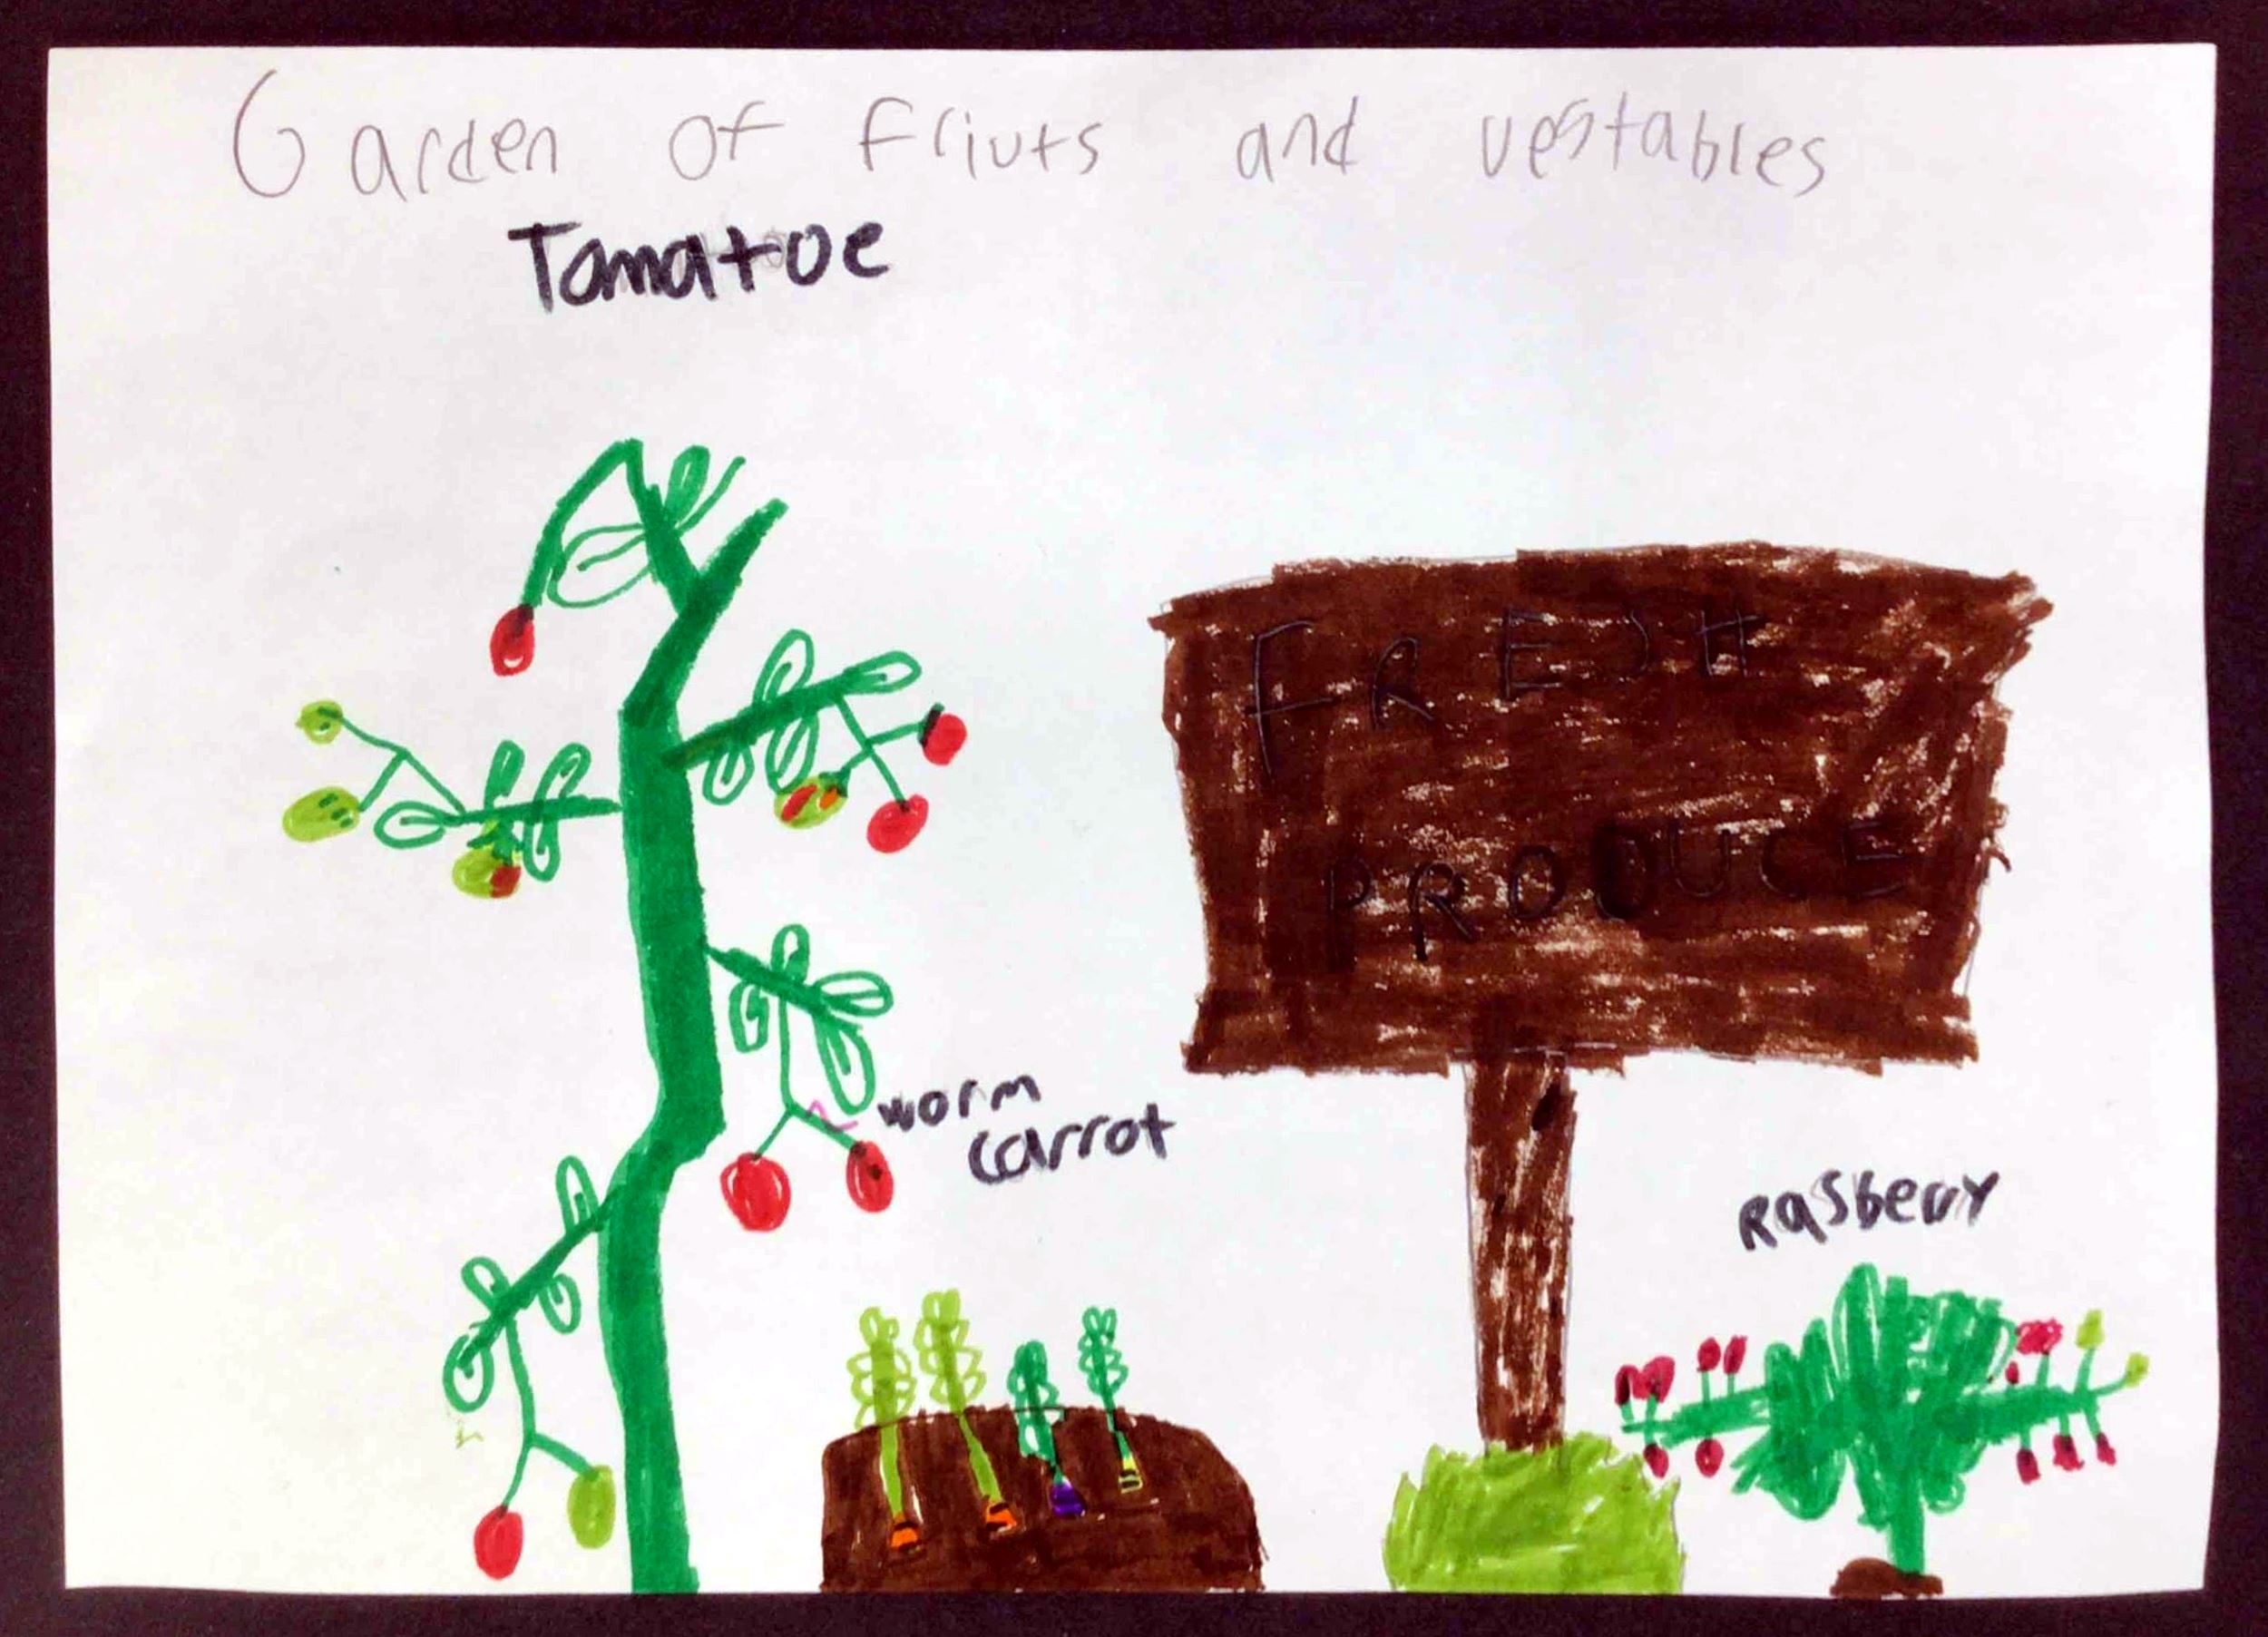 Garden of friuts and vestables
Tamatoe
FRESH
PRODUCE
worm
carrot
Rasberry